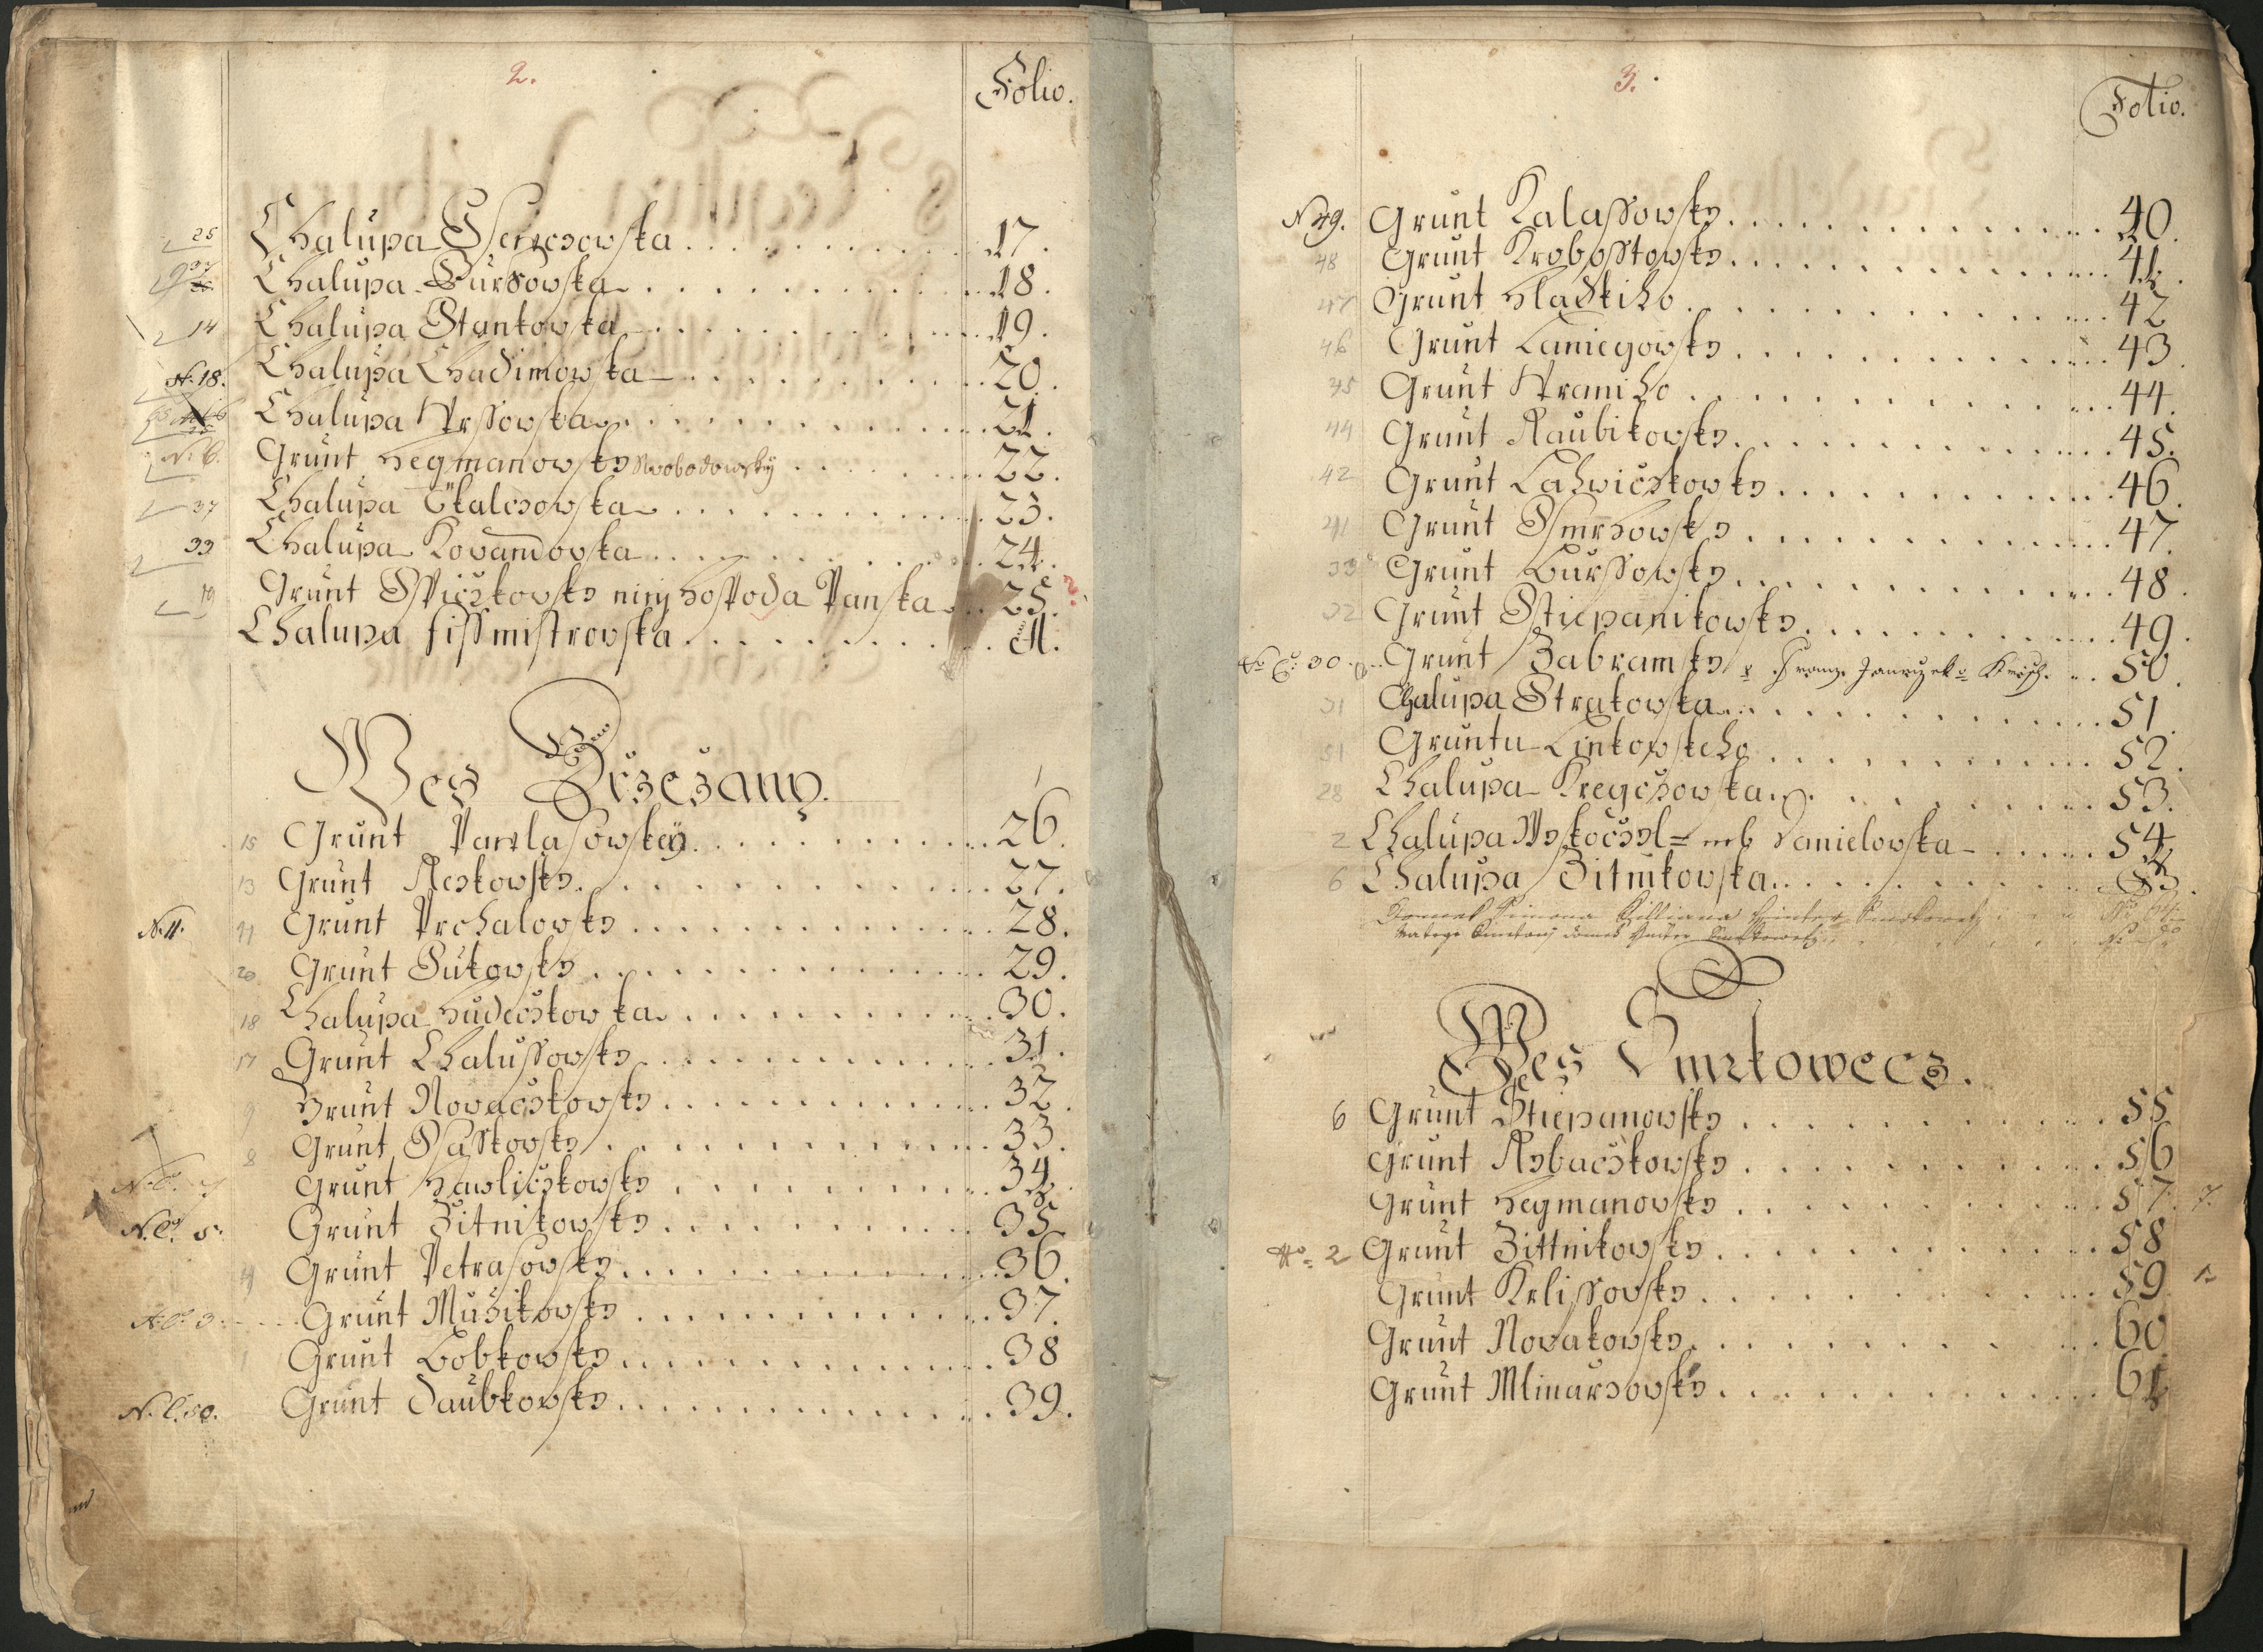 2.
Folio.
25 Chalupa . . . 17.
Chalupa Bursowska . . . 18.
14 Chalupa Stankowska . . . 19.
N. 18. Chalupa Chadimowska . . . 20.
Chalupa Wrssowska . . . 21.
N. 6. Grunt Hegmanowsky Swobodowsky . . . 22.
37 Chalupa . . . 23.
33 Chalupa Kovandovska . . . 24.
19 Grunt Sspiczkowsky niny Hospoda Panska . . . 25. ?
Chalupa fissmistrovska . . .
Wes Drzezany.
15 Grunt Pawlasowsky . . . 26.
13 Grunt Reskowsky . . . 27.
N. 11. 11 Grunt Prchalowsky . . . 28.
20 Grunt Sukowsky . . . 29.
18 Chalupa Hudeczkowska . . . 30.
17 Grunt Chalussowsky . . . 31.
9 Grunt Novaczkowsky . . . 32.
8 Grunt . . . 33.
Grunt Hawliczkowsky . . . 34.
N. C. 5. Grunt Zitnikowsky . . . 35.
4 Grunt Petrasowsky . . . 36.
N. C. 3. Grunt Muzikowsky . . . 37.
1 Grunt Bobkowsky . . . 38
N. C. 50. Grunt Daubkowsky . . . 39.
3.
Folio.
N 49. Grunt Kalassowsky . . . 40.
48 Grunt Krobosstowsky . . . 41.
47 Grunt Hladkiho . . . 42
46 Grunt . . . 43.
45 Grunt Wraniho . . . 44.
44 Grunt Raubikowsky . . . 45.
42 Grunt Lahwiczkowsky . . . 46.
41 Grunt Smrhowsky . . . 47.
33 Grunt Burssowsky . . . 48.
32 Grunt Stiepanikowsky . . . 49.
30. Grunt Zabramsky Franz . . . 50.
31 Chalupa Strakowska . . . 51.
51 Gruntu Linkowskeho . . . 52.
28 Chalupa Kregczowska . . . 53.
2 Chalupa Wyskoczyl= neb Danielowska . . . 54
6 Chalupa Zitnikowska . . .
Wes Smrkowecz.
6 Grunt Stiepanowsky . . . 55
Grunt Rybaczkowsky . . . 56
Grunt Hegmanowsky . . . 57. 7.
No = 2 Grunt Zittnikowsky . . . 58
Grunt Krlissowsky . . . 59
Grunt Novakowsky . . . 60
Grunt Mlinarzowsky . . . 61